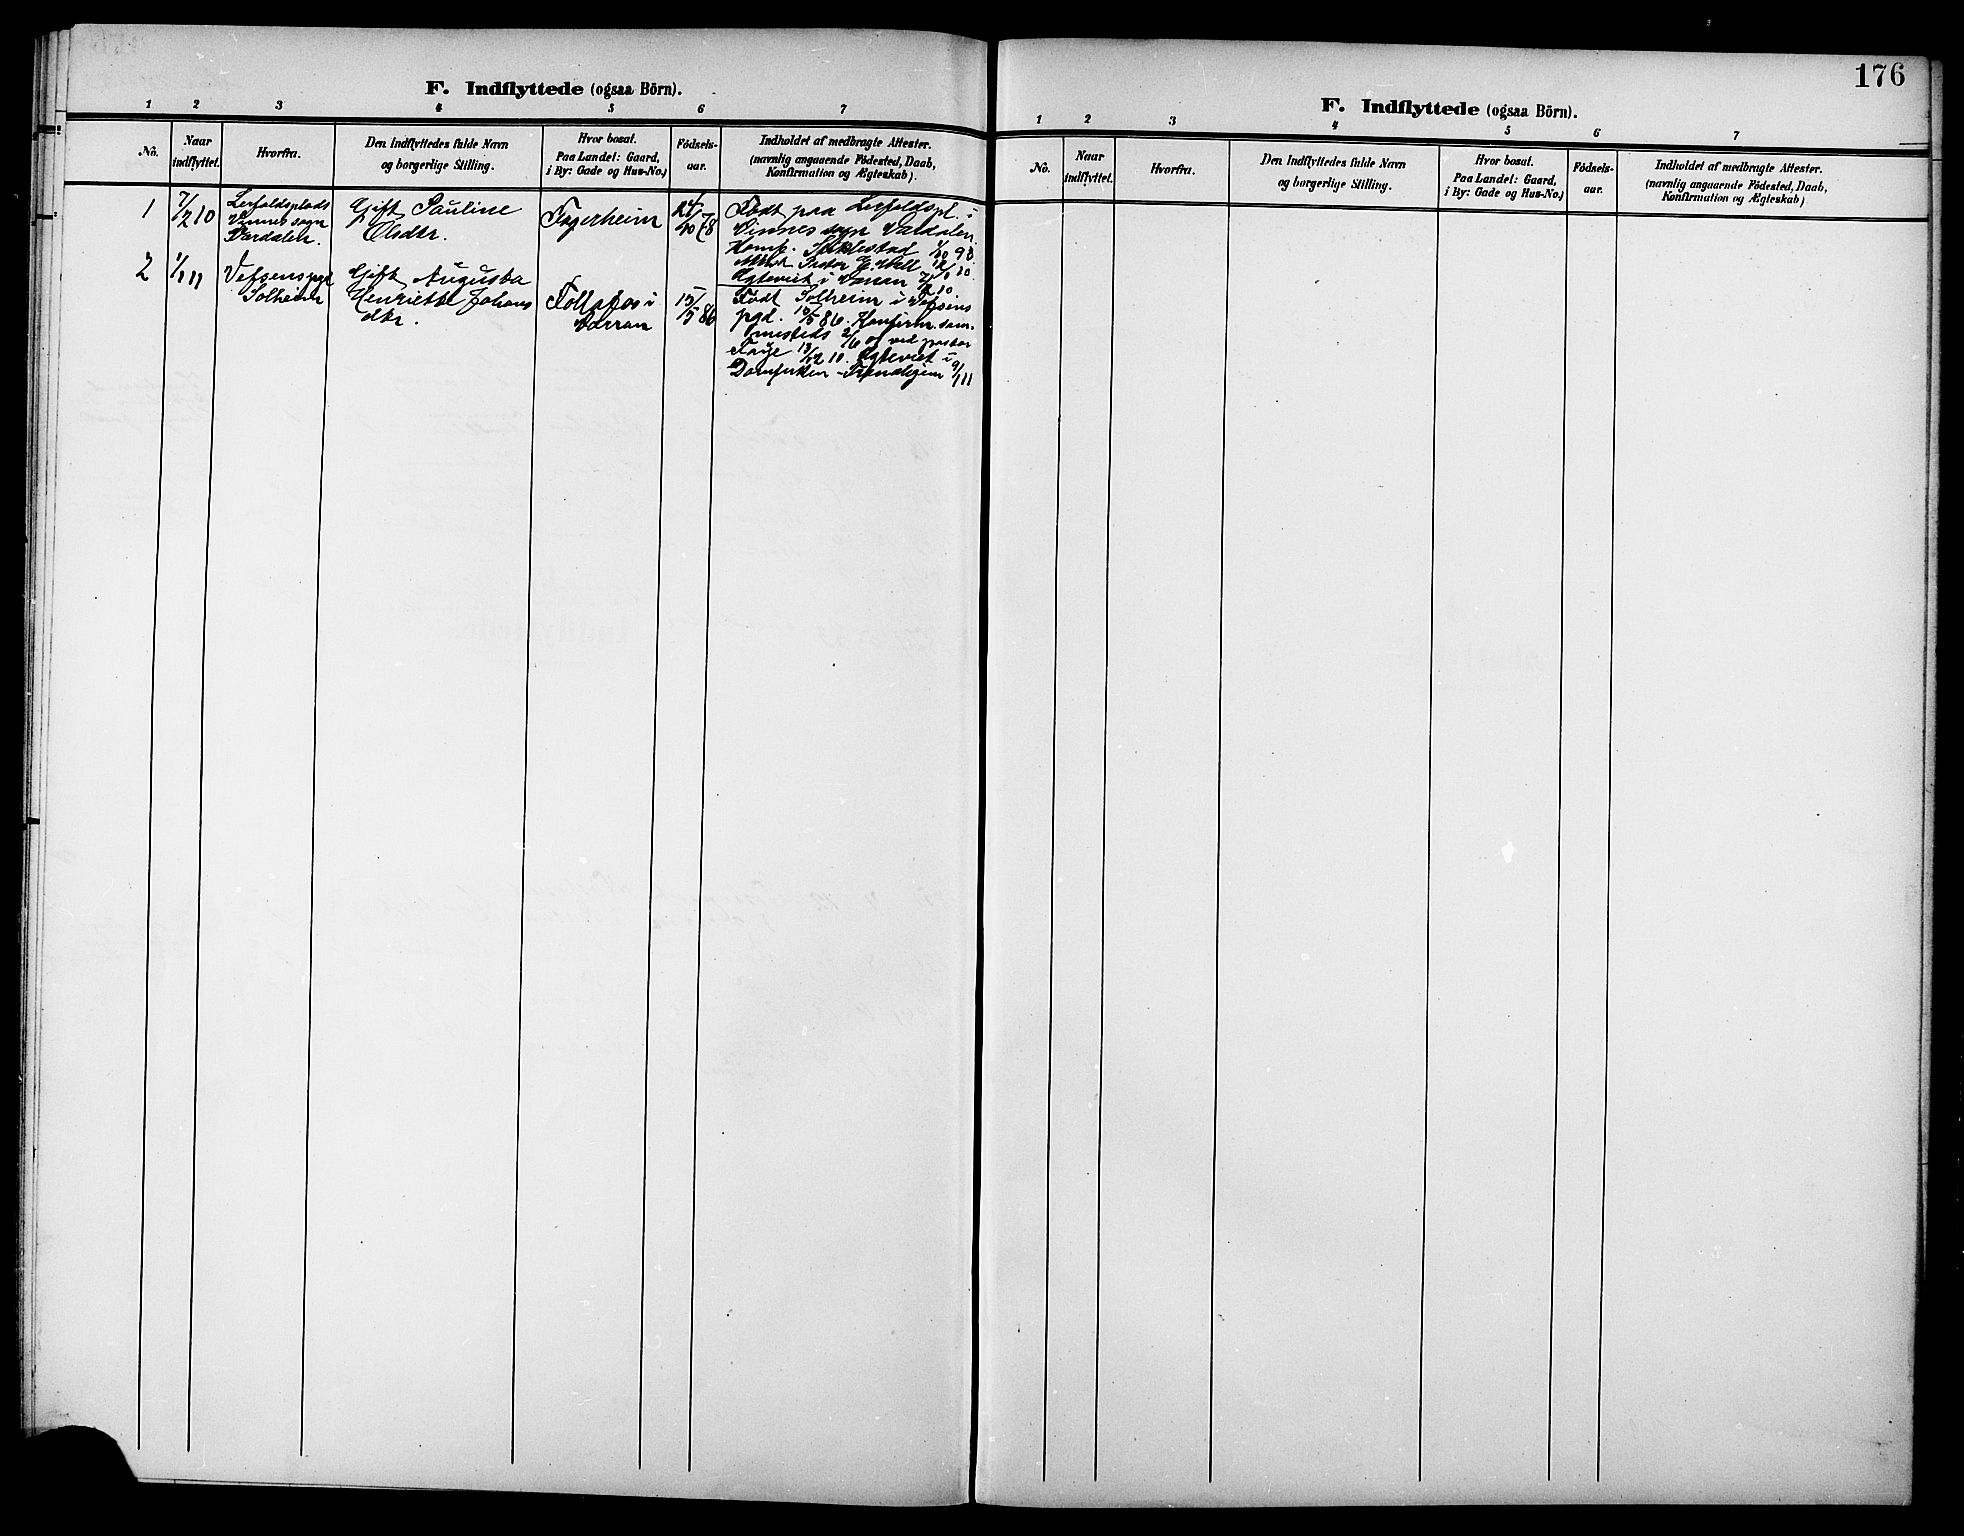 F. Indflyttede (ogsaa Börn).
1 2 3 4 5 6 7
No.
Naar
indflyttet.
Hvorfra.
Den Indflyttedes fulde Navn
og borgerlige Stilling.
Hvor bosat.
Paa Landet: Gaard,
i By: Gade og Hus-No.)
Födsels-
aar.
Indholdet af medbragte Attester.
(navnlig angaaende Födested, Daab,
Konfirmation og Ægteskab).
1
7/2 10
Leifoldsplads
Vinnes sogn
Værdalen.
Gift Pauline
Olsdtr.
Fagerheim
24/10 78
Födt paa Leifoldspl. i
Vinnes sogn Værdalen.
Konf. Stiklestad 1/10 93
Ægteviet i
2
1/1 11
Vefsens pgd
Solheim
Gift Augusta
Henriette Johans
dtr.
Follafos i
Værran
15/5 86
Födt Solheim i Vefsens
pgd. 15/5 86. Konfirm. sam-
mesteds ved pastor
Ægteviet i
Domkirken - Trondhjem 9/1 11
176
F. Indflyttede (ogsaa Börn).
1 2 3 4 5 6 7
No.
Naar
indflyttet.
Hvorfra.
Den Indflyttedes fulde Navn
og borgerlige Stilling.
Hvor bosat.
Paa Landet: Gaard,
i By: Gade og Hus-No.)
Födsels-
aar.
Indholdet af medbragte Attester.
(navnlig angaaende Födested, Daab,
Konfirmation og Ægteskab)